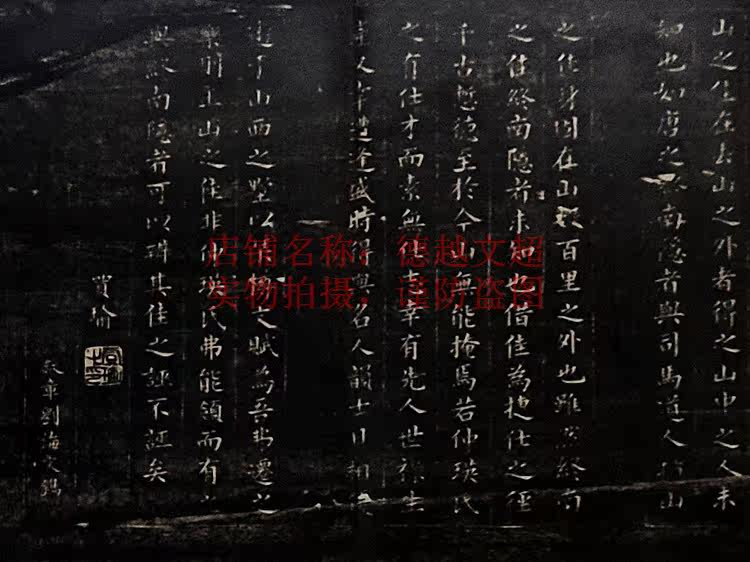 山之佳在去山之外者得之山中之人未
知也如唐之終南隱者與司馬道人指山
之佳身固在山數百里之外也雖然終南
之佳終南隱者未知也借佳為捷仕之徑
千古慙德至於今山無能掩焉若仲瑛氏
之有仕才而素無仕幸有先人世祿生
人幸遭逢盛時得與名人韻士日相
於山西之墅以文賦為吾
明玉山之佳非仲瑛氏弗能領而有
與終南隱者可以殊其佳之誣不誣矣
賈瑜
劉海
店铺名称：德越文超
实物拍摄，谨防盗图